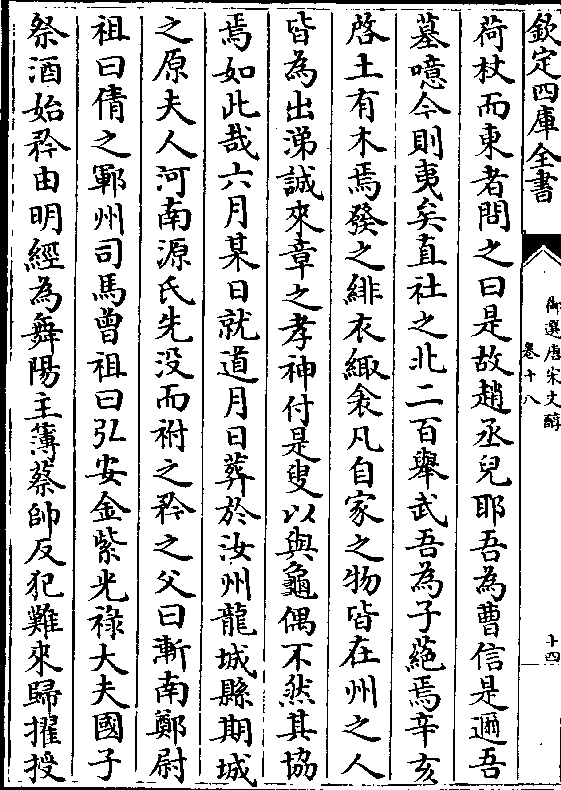 欽定四庫全書
御選唐宋文醇
卷十八
十四
荷杖而東者問之曰是故趙丞兒耶吾為曹信是邇吾
墓噫今則夷矣直社之北二百舉武吾為子蕝焉辛亥
啓土有木焉發之緋衣緅衾凡自家之物皆在州之人
皆為出涕誠來章之孝神付是叟以與龜偶不然其協
焉如此哉六月某日就道月日葬於汝州龍城縣期城
之原夫人河南源氏先没而祔之矜之父曰漸南鄭尉
祖曰倩之鄆州司馬曾祖曰弘安金紫光祿大夫國子
祭酒始矜由明經為舞陽主簿蔡帥反犯難來歸擢授